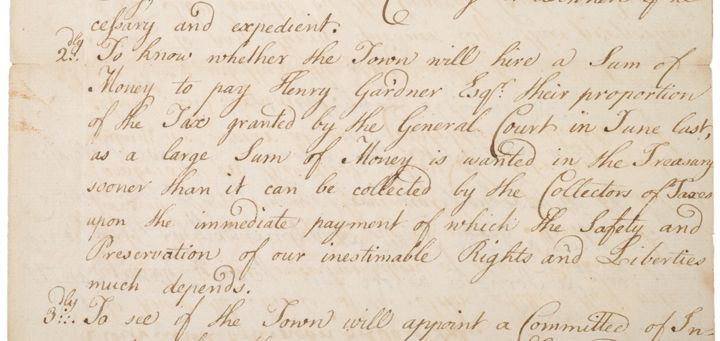 cessary and expedient.
2dly. To know whether the Town will hire a Sum of
Money to pay Henry Gardner Esqr. their proportion
of the Tax granted by the General Court in June last,
as a large Sum of Money is wanted in the Treasury
sooner than it can be collected by the Collectors of Taxes
upon the immediate payment of which the Safety and
Preservation of our inestimable Rights and Liberties
much depends.
3dly. To see if the Town will appoint a Committed of In-